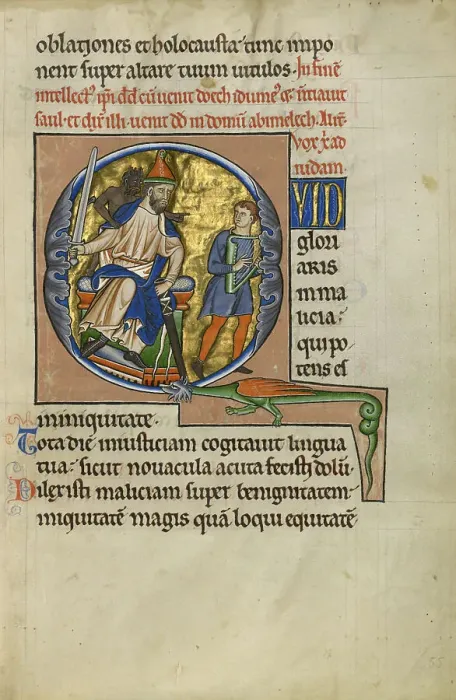 oblationes et holocausta: tunc impo
nent super altare tuum uitulos. In finē
intellectꝰ ipi dd cū uenit doech idumeꝰ ⁊ n̄tiauit
saul· et dix̄ illi· uenit dd in domū abimelech. Aiit
vox x̄ ad
iudam.
QVID
glori
aris
in ma
licia:
qui po
tens es
in iniquitate·
Tota die iniusticiam cogitauit lingua
tua: sicut nouacula acuta fecisti dolū·
Dilexisti maliciam super benignitatem·
iniquitatē magis quā loqui equitatē·
55